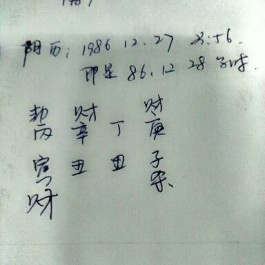 阳历：1986 12.27 23:56.
即是 86.12 28 子时
劫 财 财
丙 辛 丁 庚
寅 丑 丑 子
财 杀